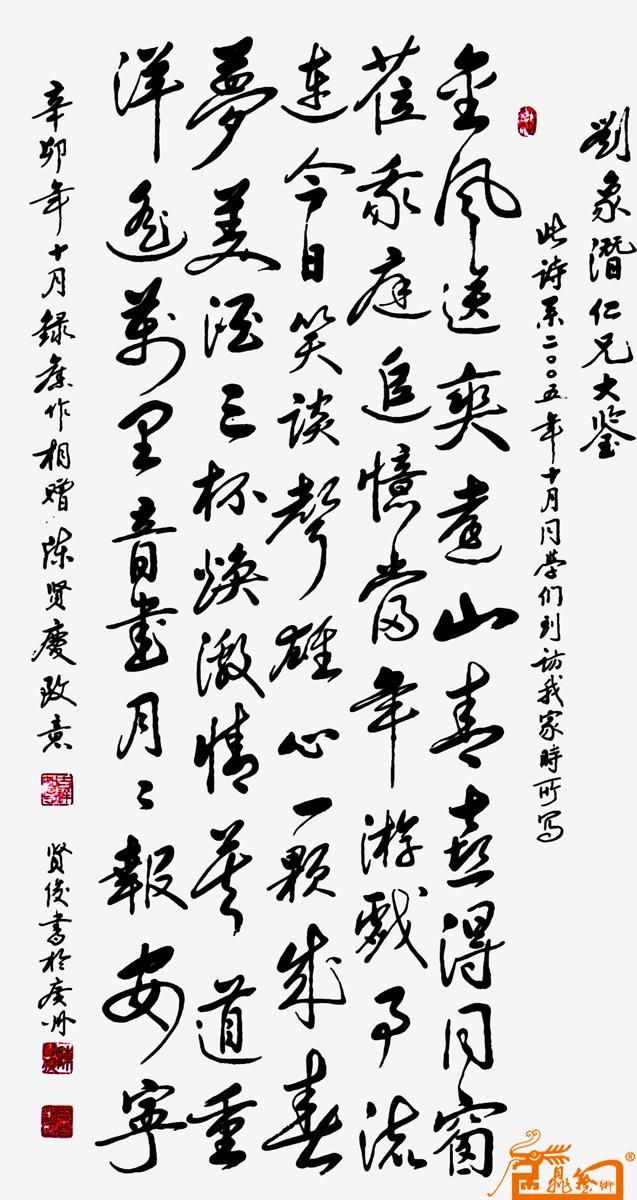 劉象潛仁兄大鉴
此诗系二〇〇五年十月同学们到访我家時所写
金風送爽遠山青喜得同窗
莅我庭追憶當年游戲事流
連今日笑談聲雄心一顆成春
夢美酒三杯焕激情莫道重
洋遥萬里音書月々報安寧
辛卯年十月録舊作相贈陳贤慶致意
贤俊書於廣州